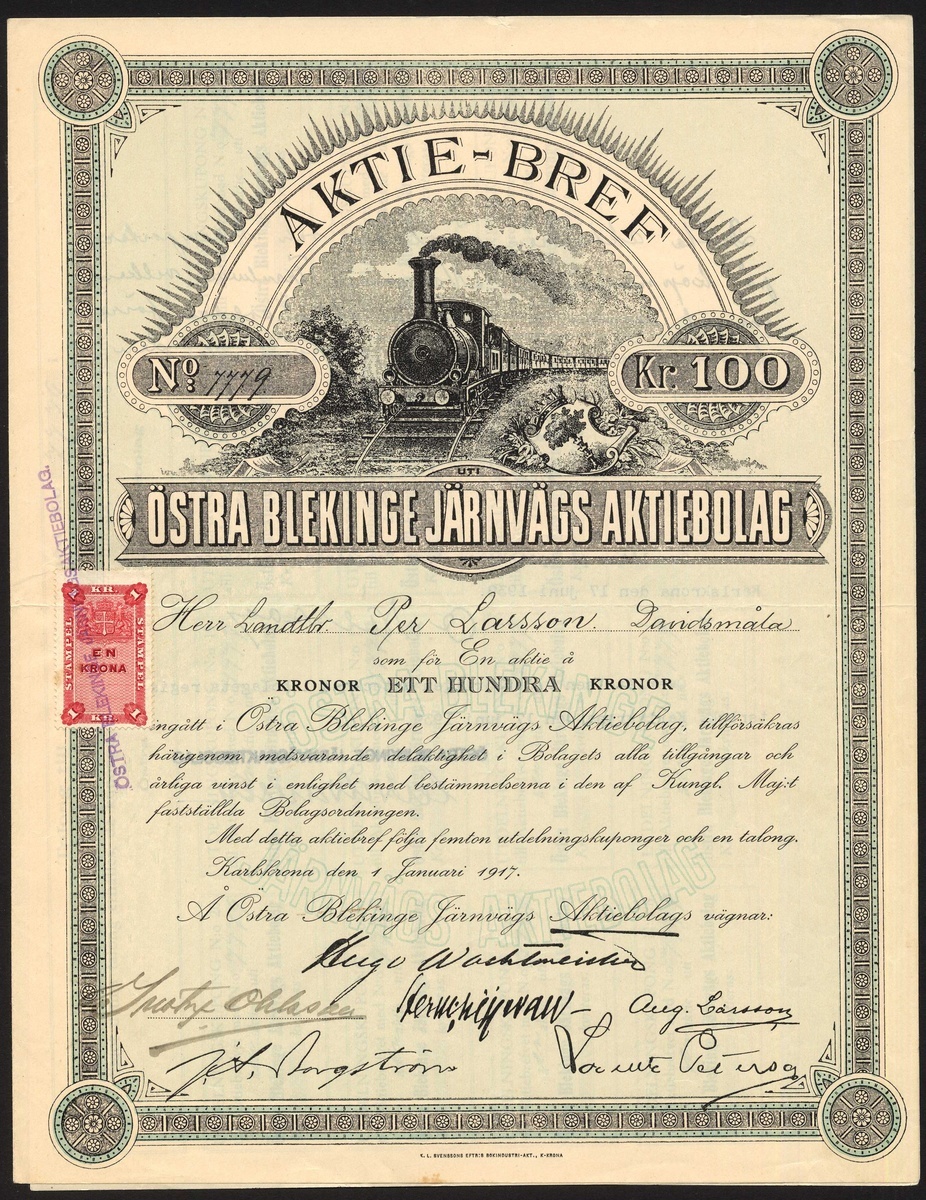 AKTIE-BREF
No: 7779
Kr. 100
UTI
ÖSTRA BLEKINGE JÄRNVÄGS AKTIEBOLAG
ÖSTRA BLEKINGE JÄRNVÄGSAKTIEBOLAG.
KR.
STAMPEL EN KRONA STAMPEL
KR.
1 1 1 1
Herr Landtbr. Per Larsson. Davidsmåla
som för En aktie å
KRONOR ETT HUNDRA KRONOR
ingått i Östra Blekinge Järnvägs Aktiebolag, tillförsäkras
härigenom motsvarande delaktighet i Bolagets alla tillgångar och
årliga vinst i enlighet med bestämmelserna i den af Kungl. Maj:t
fastställda Bolagsordningen.
Med detta aktiebref följa femton utdelningskuponger och en talong.
Karlskrona den 1 Januari 1917.
Å Östra Blekinge Järnvägs Aktiebolags vägnar:
Hugo Wachtmeister
Aug. Larsson
J. A. Borgström
K. L. SVENSSONS EFTR:S BOKINDUSTRI-AKT., K-KRONA